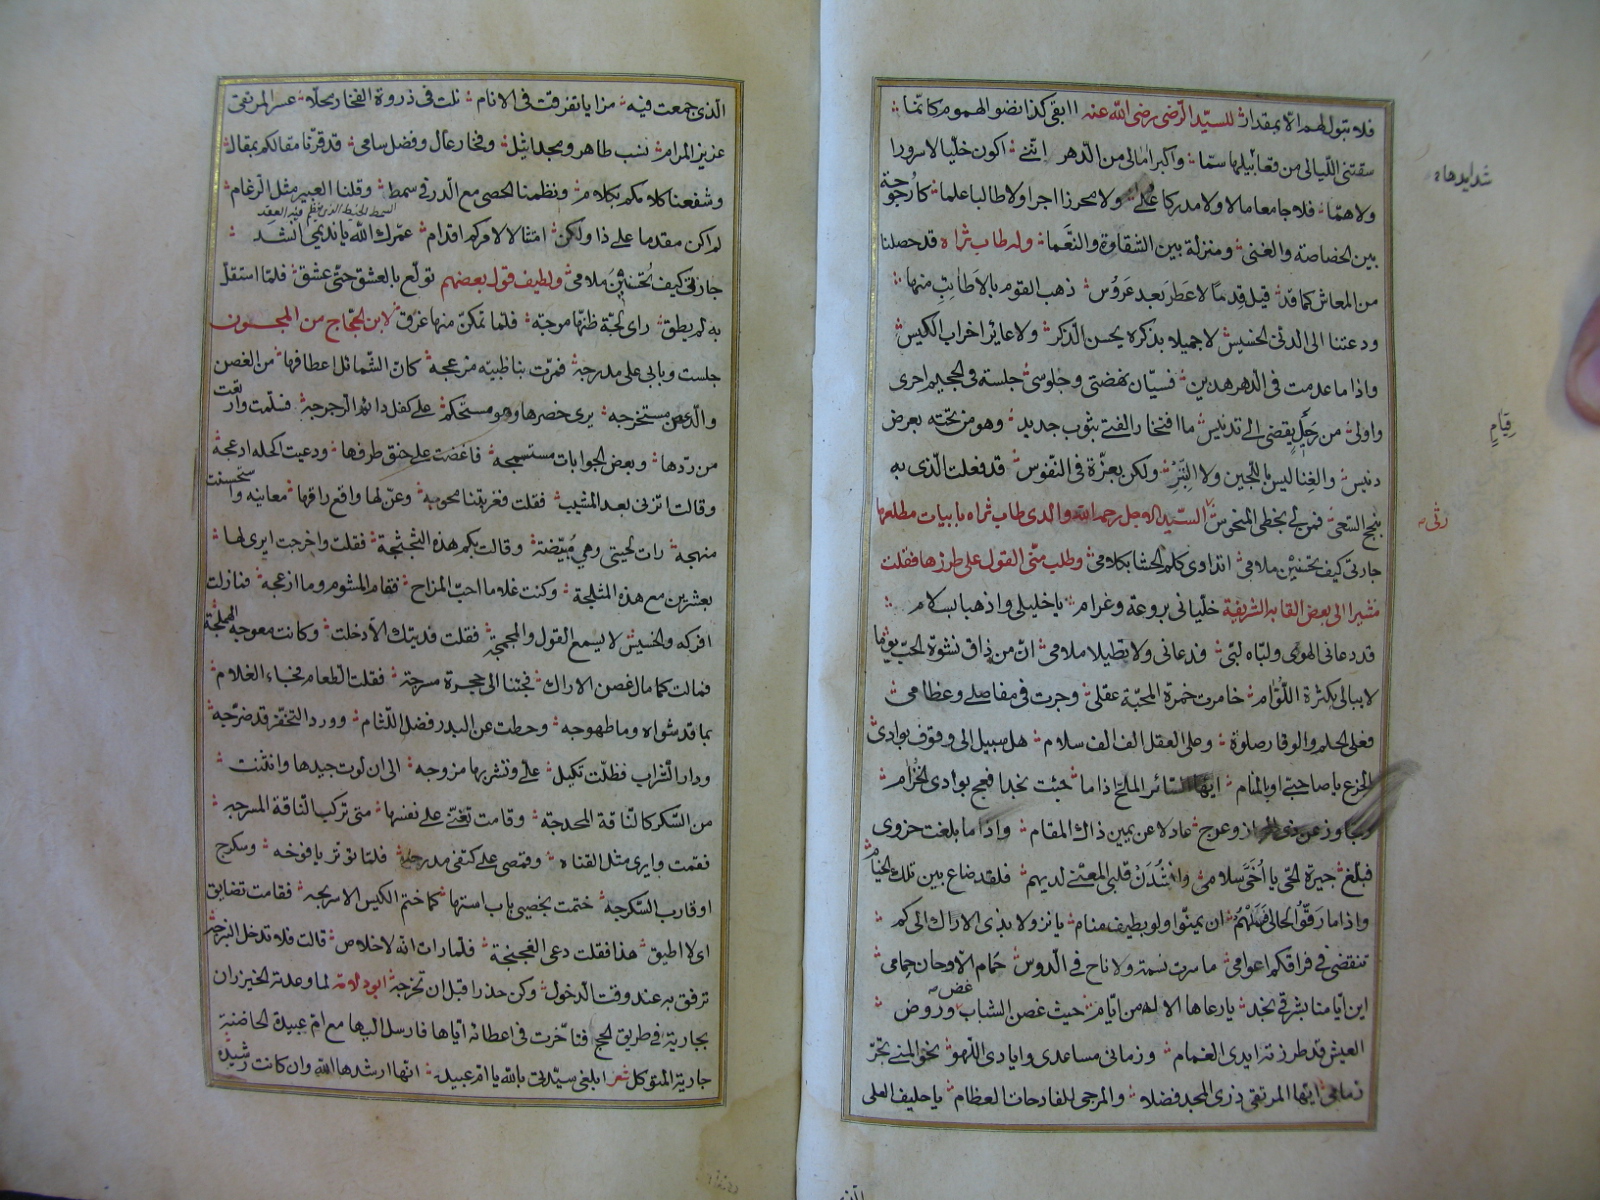 فلا تبتول لهم الا بمقدار للسيّد الرّضى رضى اللّه عنه ابقى كذا نضو الهموم كانّما
سقتنى اللّيالى من عقابيلها سمّا واكبر امالى من الدّهر انّنى اكون خلّيا لا سرورا
ولا همّا فلا جامعا مالا ولا مدركا على ولا محرزا اجرا ولا طالبا علما كارجوحة
بين الخصاصة والغنى ومنزلة بين الشقاوة والنّعما وله طاب ثراه قد حصلنا
من المعاش كما قد قيل قدمًا لا عطر بعد عروس ذهب القوم بالاطائب منها
ودعتنا الى الدنّى الخسيس لا جميلا بذكره يحسن الذكر ولا عائر اخراب الكيس
واذا ما عدمت فى الدّهر هدين فسيّان نهضتى وجلوسى جلسة فى الجحيم احرى
واولى من رحيل يقضى الى تدنيس ما افتخار الفتى بثوب جديد وهو من تحته بعرض
دنيس والغنا ليس باللجين ولا التبر ولكن بعزّة فى النّفوس قد فعلت الّذى به
ينجح السّعى فمن لى بخطّى المنحوس السيّد الاجل رحمه اللّه والدى طاب ثراه بابيات مطلعها
جارتى كيف تحسنين ملامى اتداوى كلم الحشا بكلامى وطلب منّى القول على طرزها فقلت
مشيرا الى بعض القابه الشريفة خليانى بروعة وغرام يا خليلى واذهبا بسلام
قد دعانى الهوى ولبّاه لبّى فدعانى ولا تطيلا ملامى انّ من ذاق نشوة الحبّ يوما
لا يبالى بكثرة اللّوّام خامرت خمرة المحبّة عقلى وجرت فى مفاصلى وعظامى
فعلى الحلم والوقار صلوة وعلى العقل الف الف سلام هل سبيل الى وقوف بوادى
الجزع يا صاحبى او المام ايها السّائر الملحّ اذا ما جئت نجدا فعج بوادى الخزام
وتجاوز عن ذى المجاز وعرج عادلا عن يمين ذاك المقام واذا ما بلغت حزوى
فبلّغ جيرة الحى يا اخىّ سلامى وانشدن قلبى المعنّى لديهم فلقد ضاع بين تلك الخيام
واذا ما رقّوا لحالى فسلهم ان يمنّوا ولو بطيف منام يا نزولا بذى الاراك الى كم
تنقضى فى فراقكم اعوامى ما سرت نسمة ولا ناح فى الدّوس حمام الا وحان حمامى
اين ايّامنا بشرقى نجد يا رعاها الاله من ايّام حيث غصن الشباب غض وروض
العيش قد طرزته ايدى الغمام وزمانى مساعدى وايادى اللّهو نحو المنى تجرّ
زمامى ايّها المرتقى ذرى المجد فضلا والمرجى للفادحات العظام يا حليف العلى
شدايدها
قيام
رثى
الّذى جمعت فيه مزايا تفرّقت فى الانام نلت فى ذروة الفخار محلّا عسر المرتقى
عزيز المرام نسب طاهر ومجد اثيل وفخار عال وفضل سامى قد قرنّا مقالكم بمقال
وشفعنا كلامكم بكلام ونظمنا الحصى مع الدر فى سمط وقلنا العبير مثل الرغام
السمط الخيط الذى ينظم فيه العقد
لم اكن مقدما على ذا ولكن امتثالا لامركم اقدام عمرك اللّه يا نديمى انشد
جارتى كيف تحسنين ملامى ولطيف قول بعضهم تولّع بالعشق حتّى عشق فلمّا استقلّ
به لم يطق راى لجّة ظنّها موجة فلمّا تمكّن منها غرق لابن الحجّاج من المجون
جلست وبابى على مدرجة فمرّت بنا ظبية مزعجة كانّ الشّمائل اعطافها من الغصن
والدعص مستخرجه يرى خصرها وهو مستحكم على كفل دائم الرّجرجة فسلّمت وارتعت
من ردّها وبعض الجوابات مستسمجه فاغضت على خنق طرفها ودعيت الحله ادعجة
وقالت اترنى بعد المشيب فقلت فغرّبتنا نحوه وعزّ لها واقع راقها معاينه واستحسنت
منهجة رات لحيتى وهى مبيّضة وقالت بكم هذه الثجثجة فقلت واخرجت ايرى لها
بعشرين مع هذه المثلجة وكنت غلاما احبّ المزاح فقام المشوم وما ازعجه فنازلت
افركه والخسيس لا يسمع القول والمجمجة فقلت فديتك الا دخلت وكانت معوجه الهملجة
فمالت كما مال غصن الاراك فجئنا الى حجرة مسرجة فقلت الطعام فجاء الغلام
بما قد شواه وما طهوجه وحطت عن البدر فضل اللثام وورد التخفّر قد ضرّجه
ودار الشراب فظلّت تكيل على وتشربها مزوجه الى ان لوت جيدها وانثنت
من السّكر كالنّاقة المحدجة وقامت تغنّى على نفسها متى تركب النّاقة المسرجه
فقمت وايرى مثل القناه وقمصى على كتفى مدرجه فلمّا توتر يافوخه وسكرج
او قارب السّكرجة ختمت بخصيى باب استها كما ختم الكيس الاسرجه فقامت تضايق
اى لا اطيق هذا فقلت دعى الغجنجة فلما رات انه لا خلاص قالت فلا تدخل النيرجة
ترفق به عند وقت الدّخول وكن حذرا قبل ان تخرجه ابو دلامة لما وعدته الخيزران
بجارية فى طريق الحج فتاخّرت فى اعطائه ايّاها فارسل اليها مع امّ عبيدة الحاضنة
جارية المتوكل شعر ابلغى سيّدتى باللّه يا امّ عبيده انها ارشدها اللّه وان كانت رشيدة